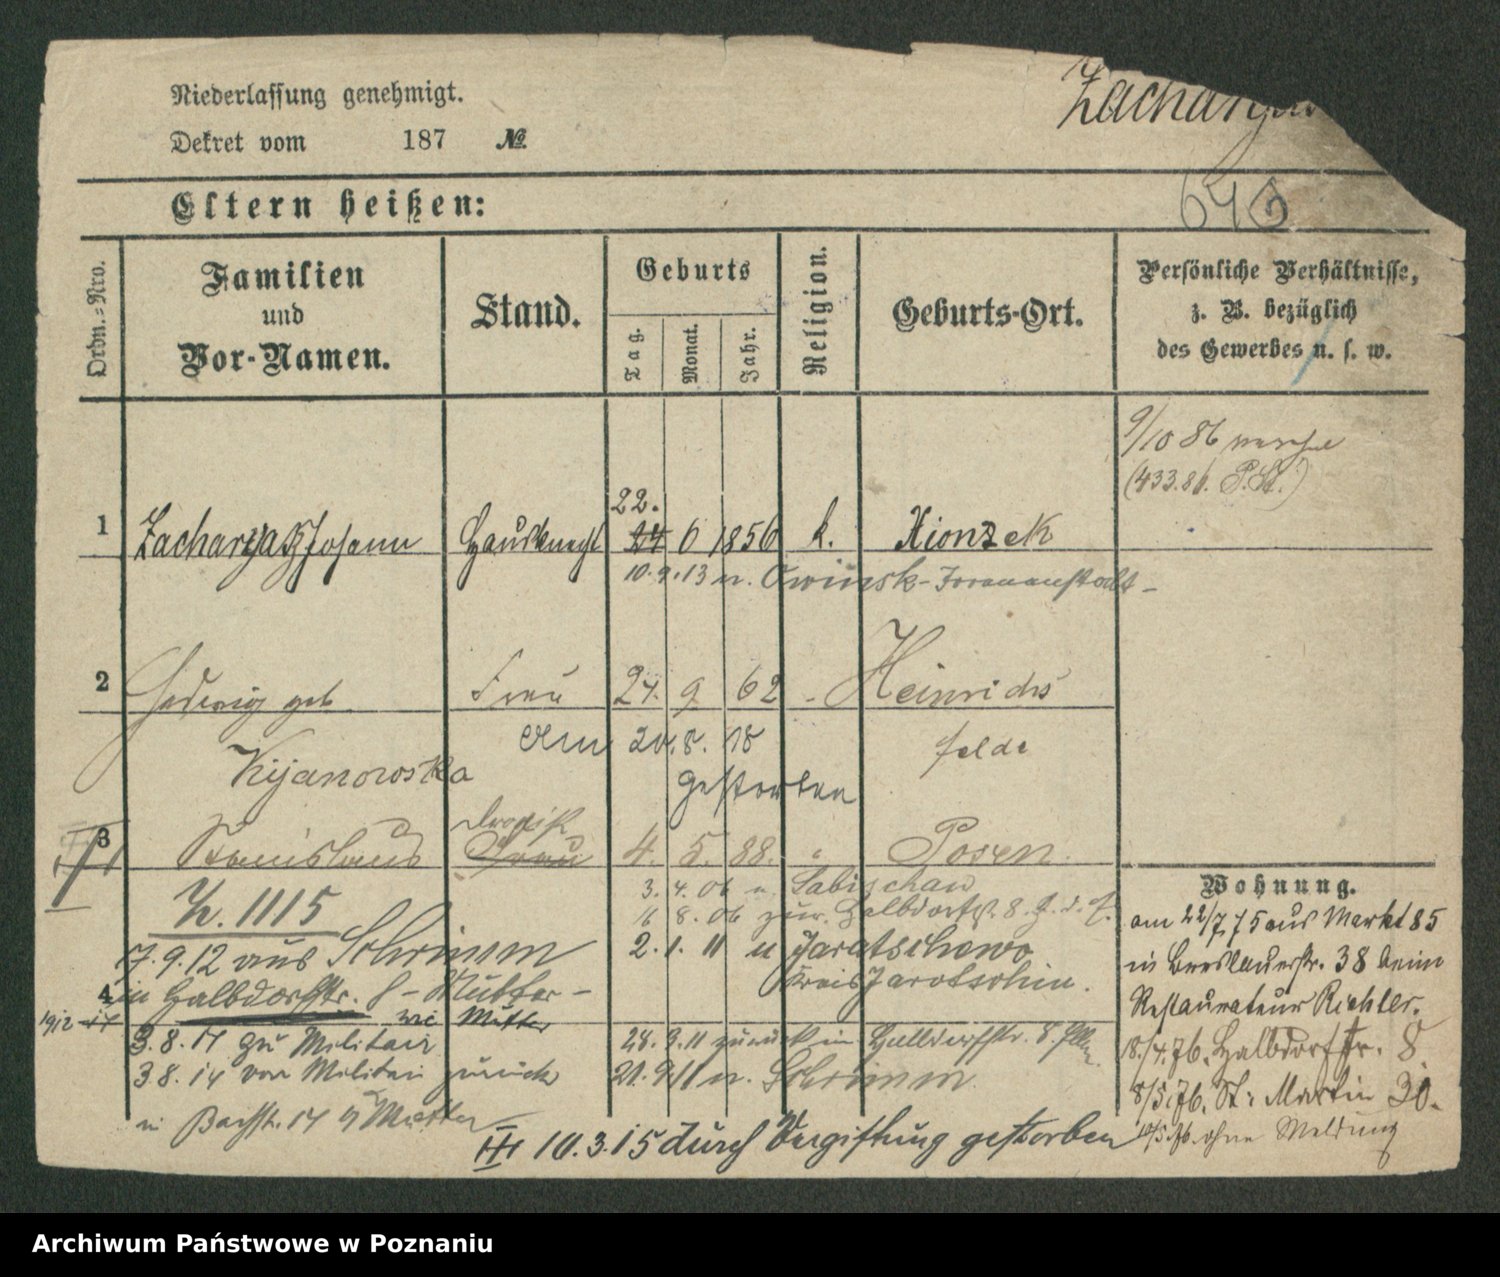 Niederlassung genehmigt.
Dekret vom 187 №
Zacharyasz
Eltern heißen:
646
Ordn.=Nro.
Familien
und
Vor-Namen.
Stand.
Geburts
Tag.
Monat.
Jahr.
Religion.
Geburts-Ort.
Persönliche Verhältnisse,
z. B. bezüglich
des Gewerbes u. s. w.
9/10 86
(433.86. P.St.)
1 Zacharyasz Johann Hausknecht 22. 24 6 1856 k. Xionzek
10.9.13 n. Owinsk-Irrenanstalt-
2 Hedwig geb. Frau 24. 9 62 - Heinrichs
felde
Kijanowska
am 20.8.18
gestorben
3 Stanislaus Drogist Frau 4. 5. 88. " Posen.
Z. 1115
3.4.06 n. Sabischau
16 8.06 zur. Halbdorfstr. 8.
7.9.12 aus Schrimm
2.1.11 n Jaratschewo
Kreis Jarotschin.
4 in Halbdorfstr. 8 - Mutter -
1912-17 Mutter
3.8.14 zu Militair
28.9.11 zurück in Halbdorfstr. 8.
3.8.14 von Militair zurück
21.9.11 n. Schrimm
in Bachstr. 14 Mutter
III 10.3.15 durch Vergiftung gestorben
Wohnung.
am 22/7 75 aus Markt 85
in Breslauerstr. 38 beim
Restaurateur Richter.
18./4.76. Halbdorfstr. 8.
8/5.76. St. Martin 30.
ohne Meldung
Archiwum Państwowe w Poznaniu